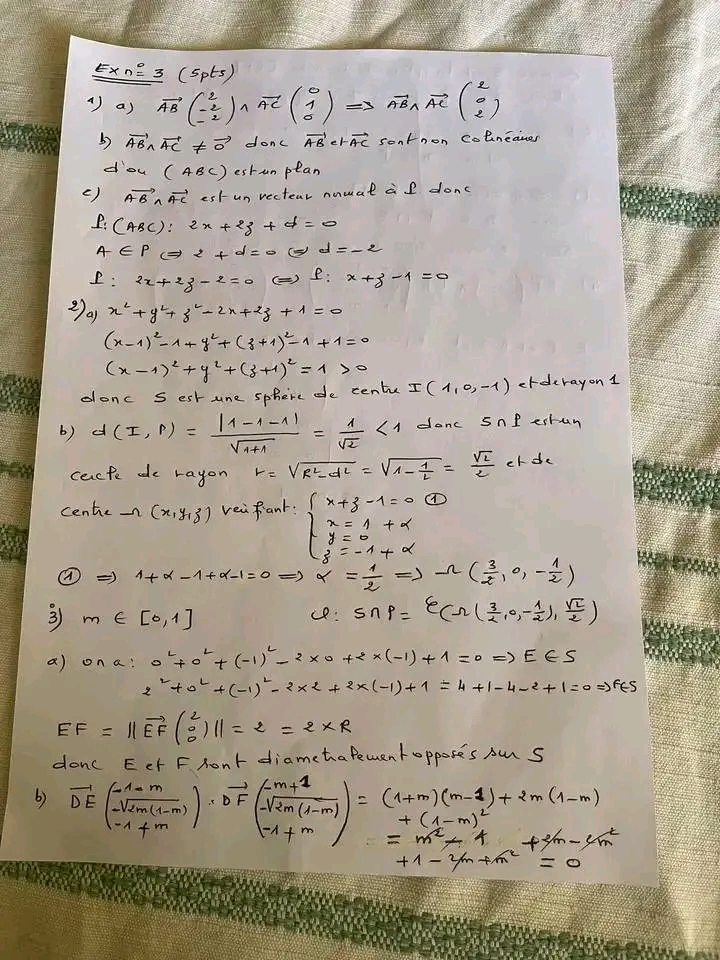 Ex n° 3 (5pts)
1) a) AB→ (2 -2 -2) ∧ AC→ (0 1 0) => AB→ ∧ AC→ (2 0 2)
b) AB→ ∧ AC→ ≠ 0→ donc AB→ et AC→ sont non colinéaires
d'ou (ABC) est un plan
c) AB→ ∧ AC→ est un vecteur normal à P donc
P: (ABC): 2x + 2z + d = 0
A ∈ P <=> 2 + d = 0 <=> d = -2
P: 2x + 2z - 2 = 0 <=> P: x + z - 1 = 0
2) a) x² + y² + z² - 2x + 2z + 1 = 0
(x-1)² - 1 + y² + (z+1)² - 1 + 1 = 0
(x-1)² + y² + (z+1)² = 1 > 0
donc S est une sphère de centre I(1,0,-1) et de rayon 1
b) d(I,P) = |1-1-1|/√(1+1) = 1/√2 < 1 donc S∩P est un
cercle de rayon r = √(R²-d²) = √(1-1/2) = √2/2 et de
centre Ω(x,y,z) vérifiant: { x+z-1=0 ①
x = 1 + α
y = 0
z = -1 + α
① => 1+α-1+α-1=0 => α = 1/2 => Ω(3/2, 0, -1/2)
3) m ∈ [0,1] φ: S∩P = 𝒞(Ω(3/2,0,-1/2), √2/2)
a) on a: 0² + 0² + (-1)² - 2×0 + 2×(-1) + 1 = 0 => E ∈ S
2² + 0² + (-1)² - 2×2 + 2×(-1) + 1 = 4+1-4-2+1=0 => F∈S
EF = ||EF→ (2 0 0)|| = 2 = 2×R
donc E et F sont diametralement opposés sur S
b) DE→ (-1-m -√(2m(1-m)) -1+m) . DF→ (-m+1 -√(2m(1-m)) -1+m) = (1+m)(m-1) + 2m(1-m)
+ (1-m)²
= m² - 1 + 2m - 2m²
+ 1 - 2m + m² = 0